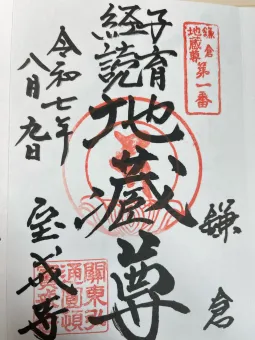 鎌倉
地蔵尊
第一番
鎌倉
子育
経読
地蔵尊
令和七年
八月九日
宝戒寺
關東弘
通圓頓